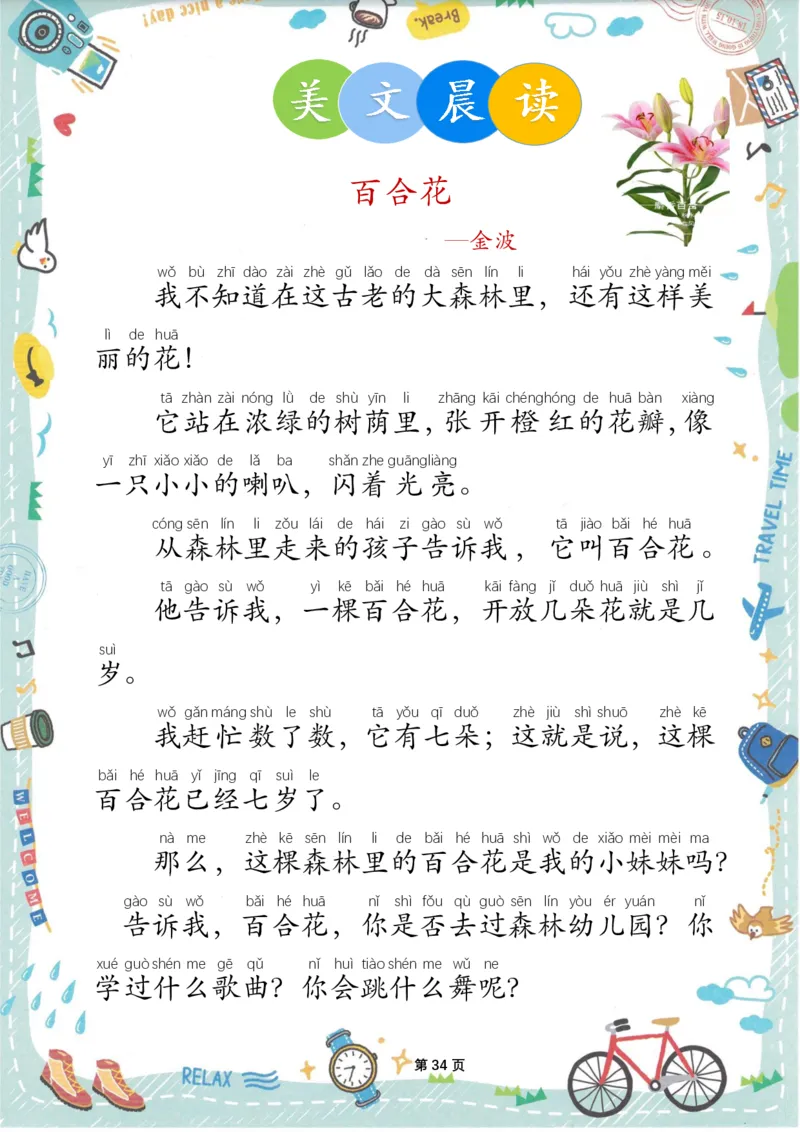 have a nice day!
Break.
美文晨读
百合花
—金波
wǒ bù zhī dào zài zhè gǔ lǎo de dà sēn lín li hái yǒu zhè yàng měi
我不知道在这古老的大森林里，还有这样美
lì de huā
丽的花！
tā zhàn zài nóng lǜ de shù yīn li zhāng kāi chéng hóng de huā bàn xiàng
它站在浓绿的树荫里，张开橙红的花瓣，像
yī zhī xiǎo xiǎo de lǎ ba shǎn zhe guāng liàng
一只小小的喇叭，闪着光亮。
cóng sēn lín li zǒu lái de hái zi gào sù wǒ tā jiào bǎi hé huā
从森林里走来的孩子告诉我，它叫百合花。
tā gào sù wǒ yì kē bǎi hé huā kāi fàng jǐ duǒ huā jiù shì jǐ
他告诉我，一棵百合花，开放几朵花就是几
suì
岁。
wǒ gǎn máng shù le shù tā yǒu qī duǒ zhè jiù shì shuō zhè kē
我赶忙数了数，它有七朵；这就是说，这棵
bǎi hé huā yǐ jīng qī suì le
百合花已经七岁了。
nà me zhè kē sēn lín li de bǎi hé huā shì wǒ de xiǎo mèi mèi ma
那么，这棵森林里的百合花是我的小妹妹吗？
gào sù wǒ bǎi hé huā nǐ shì fǒu qù guò sēn lín yòu ér yuán nǐ
告诉我，百合花，你是否去过森林幼儿园？你
xué guò shén me gē qǔ nǐ huì tiào shén me wǔ ne
学过什么歌曲？你会跳什么舞呢？
TRAVEL TIME
WELCOME
RELAX
第 34 页